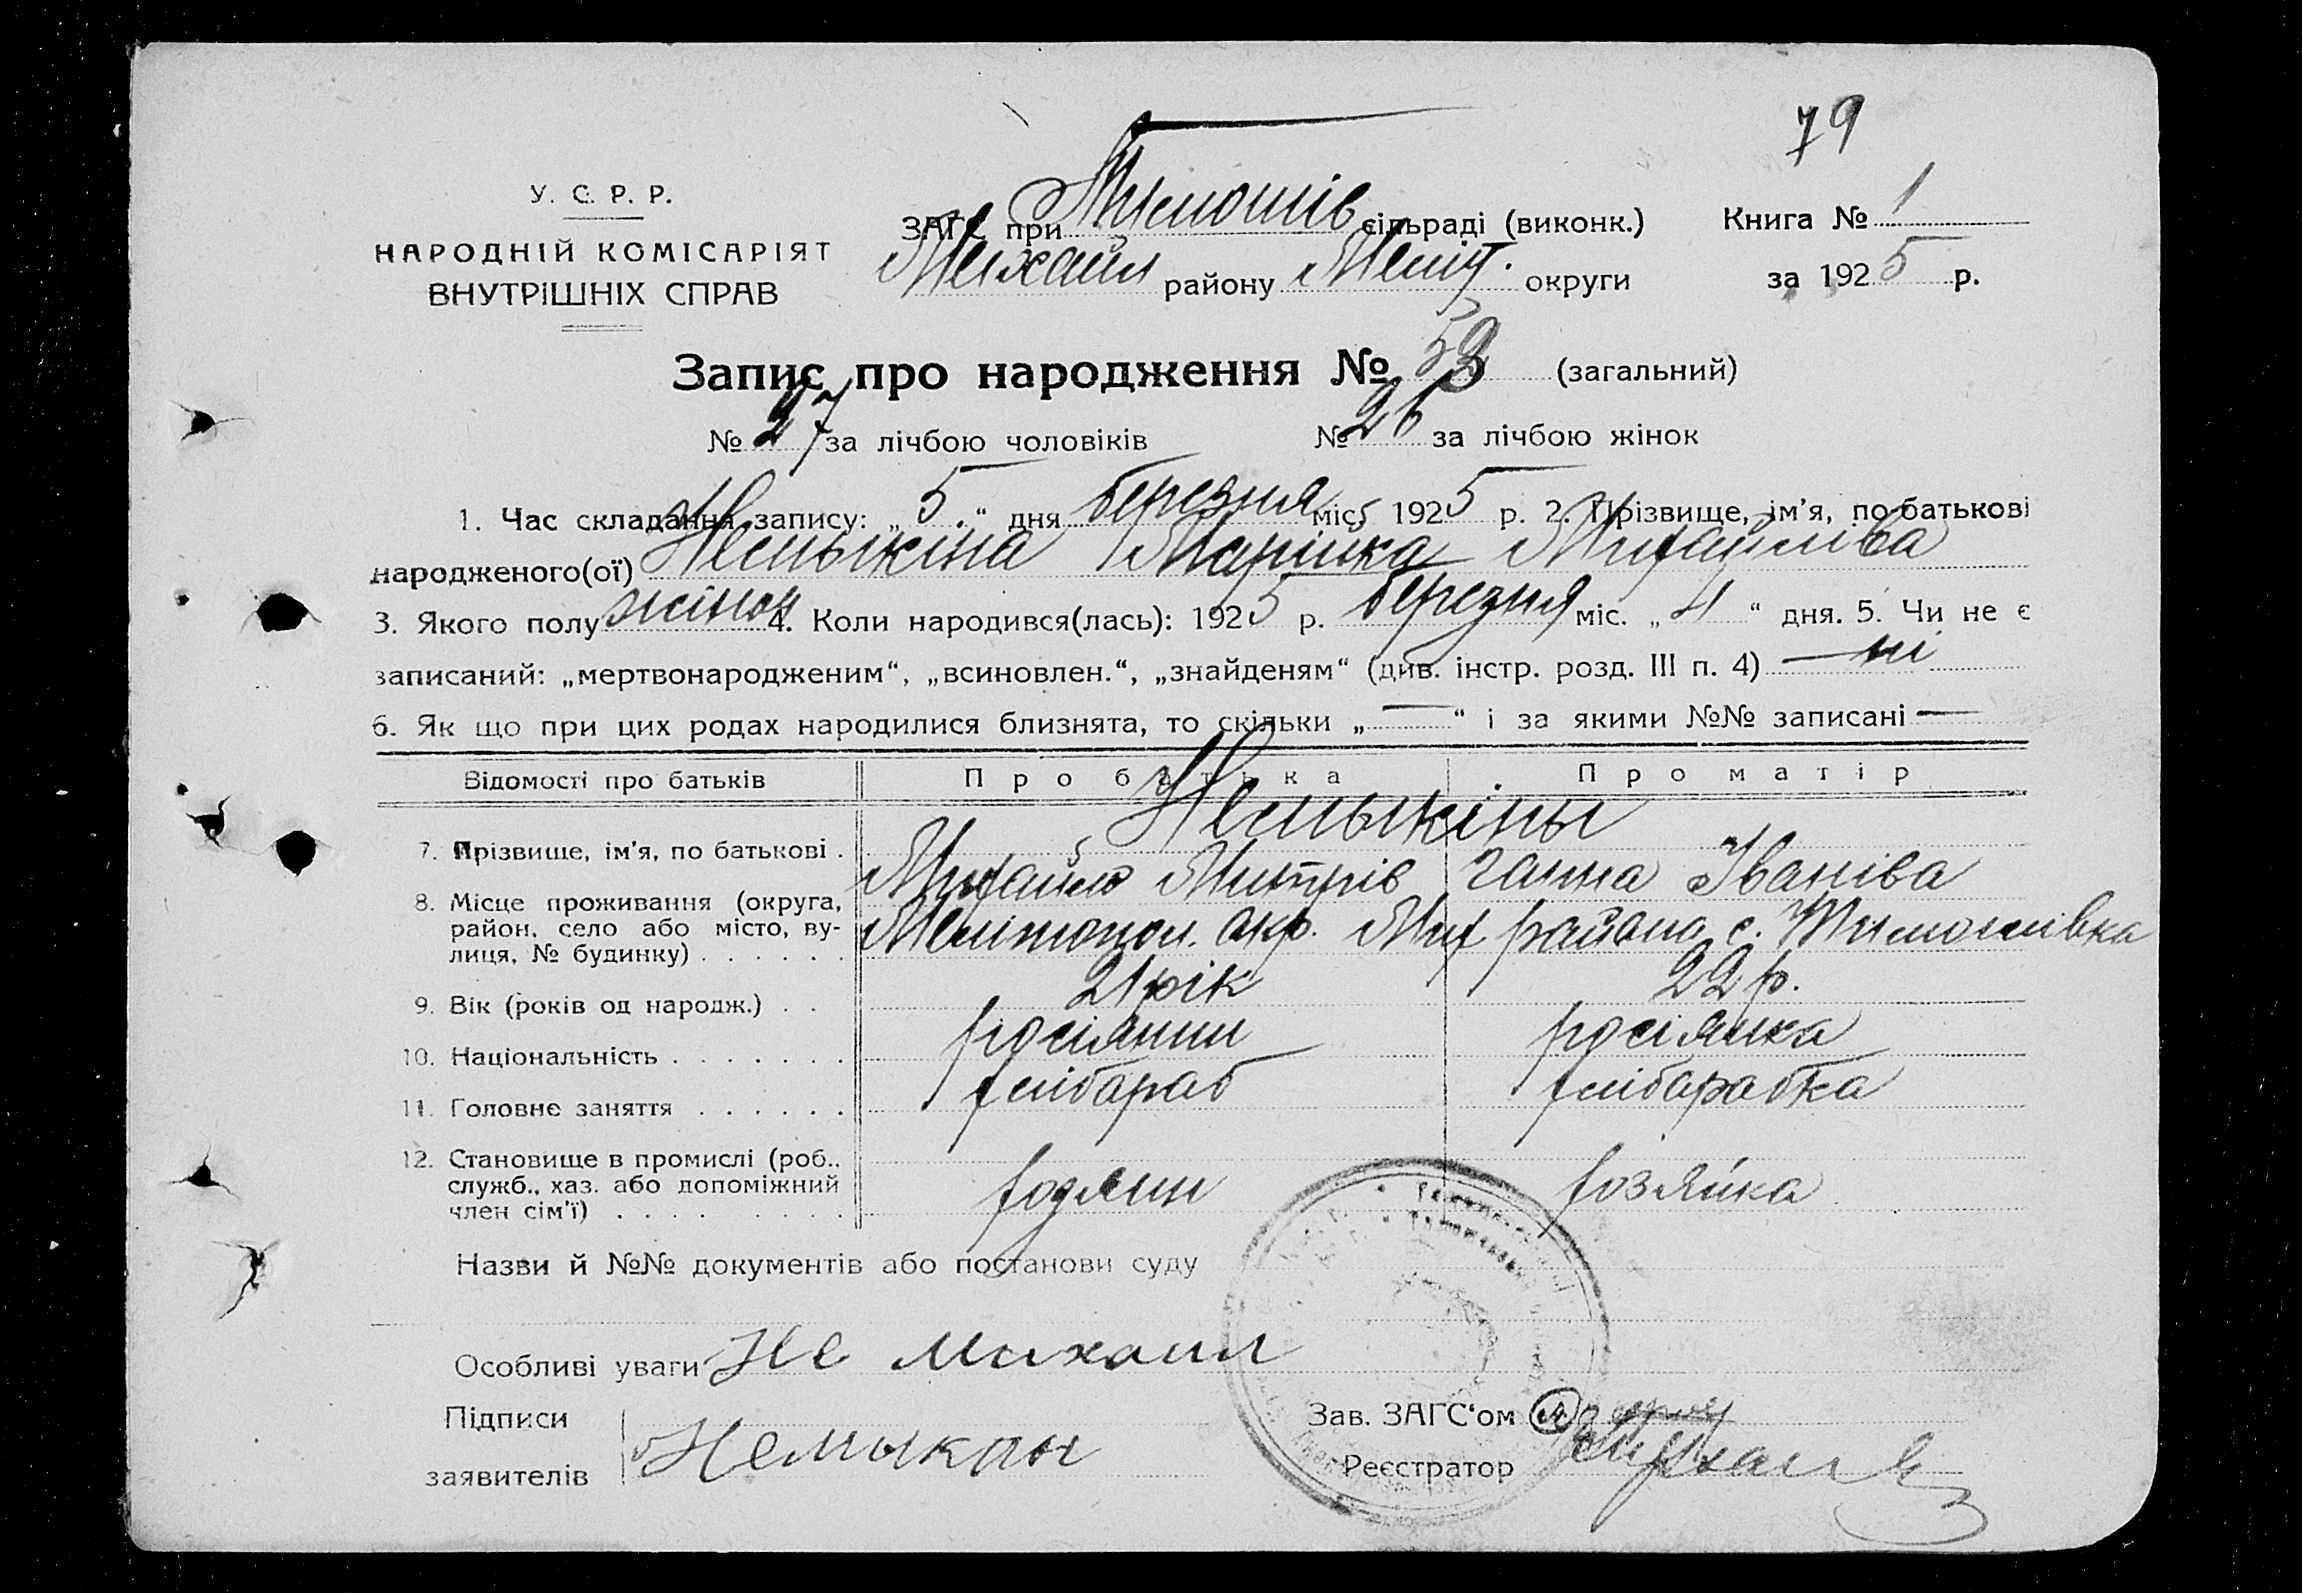 79
У. С. Р. Р.
НАРОДНІЙ КОМІСАРІЯТ
ВНУТРІШНІХ СПРАВ
ЗАГС при Тимошів сільраді (виконк.)
Михайл району Меліт. округи
Книга № 1
за 1925 р.
Запис про народження № 53 (загальний)
№ 27 за лічбою чоловіків № 26 за лічбою жінок
1. Час складання запису: „5.“ дня березня міс. 1925 р. 2. Прізвище, ім’я, по батькові
народженого(ої) Немыкіна Марійка Михайліва
3. Якого полу жіноч 4. Коли народився(лась): 1925 р. березня міс. „4“ дня. 5. Чи не є
записаний: „мертвонародженим“, „всиновлен.“, „знайденям“ (див. інстр. розд. III п. 4) — ні
6. Як що при цих родах народилися близнята, то скільки „—“ і за якими №№ записані —
Відомості про батьків Про батька Про матір
Немыкіны
7. Прізвище, ім’я, по батькові . Михайло Митрів Ганна Іваніва
8. Місце проживання (округа,
район, село або місто, ву-
лиця, № будинку) . . . . . . Мелітопол. окр. Мих района с. Тимошівка
9. Вік (років од народж.) . . 21 рік 22 р.
10. Національність . . . . . . . росіянин росіянка
11. Головне заняття . . . . . . хлібараб хлібарабка
12. Становище в промислі (роб.,
служб., хаз. або допоміжний
член сім’ї) . . . . . . . . . хозяин хозяйка
Назви й №№ документів або постанови суду
Особливі уваги Не Михаил
Підписи
заявителів Немыкин
Зав. ЗАГС‘ом
Реєстратор